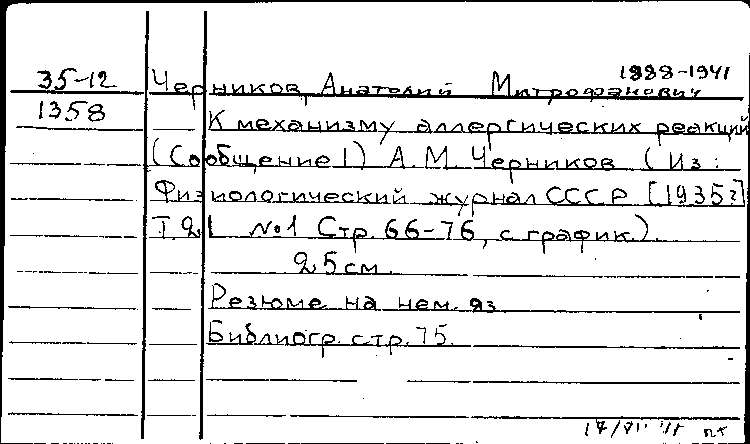 1888-1941
35-12 Черников, Анатолий Митрофанович
1358 К механизму аллергических реакций
(Сообщение 1) А.М. Черников (Из:
Физиологический журнал СССР [1935?]
Т.21 №1 Стр. 66-76, с график.)
25 см.
Резюме на нем. яз.
Библиогр. стр. 75.